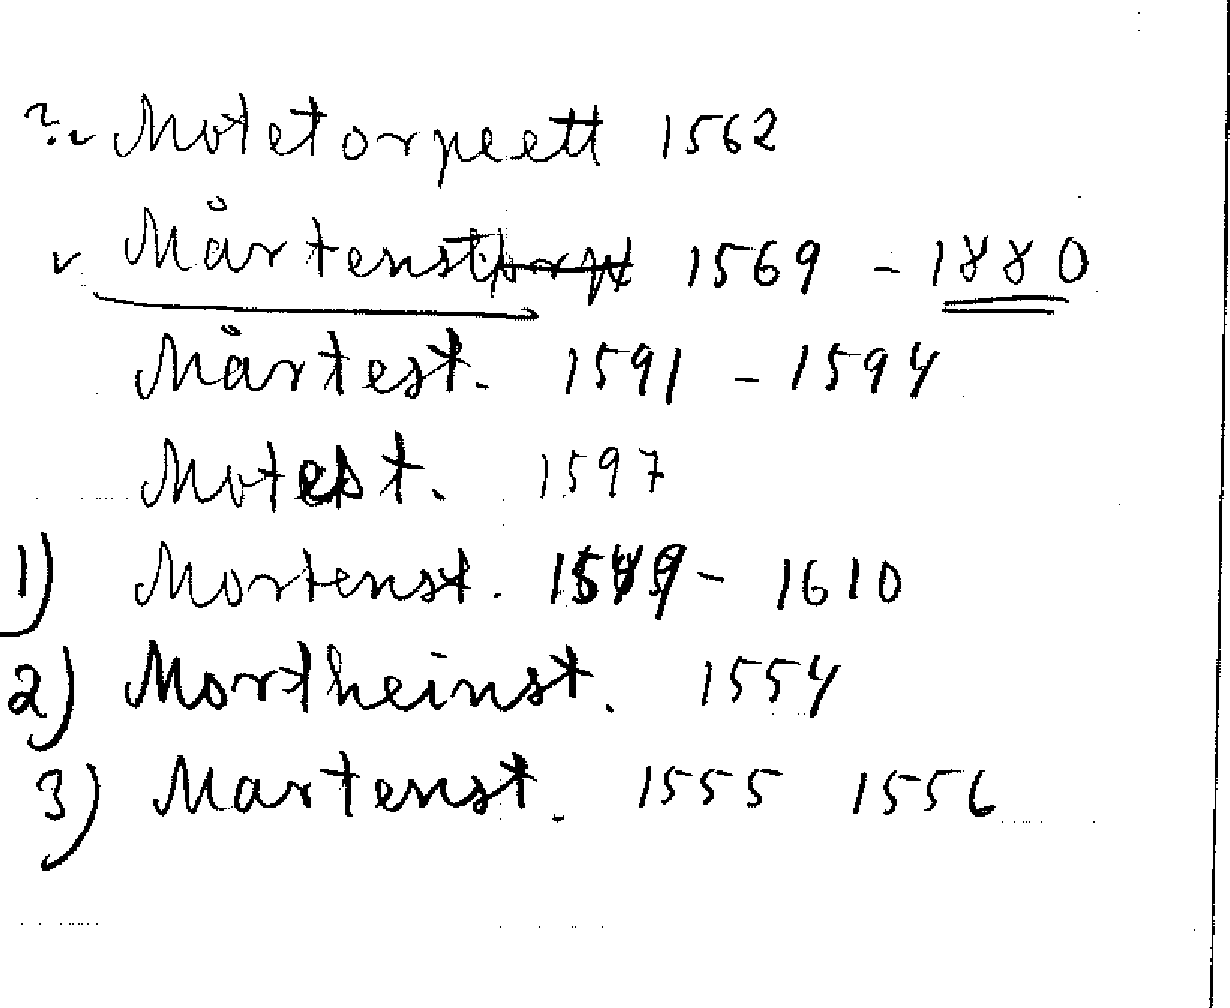 ?. Motetorpeett 1562
v. Mårtenstorp 1569 - 1880
Mårtest. 1591 - 1594
Motest. 1597
1) Mortenst. 1549 - 1610
2) Mortheinst. 1554
3) Martenst. 1555 1556